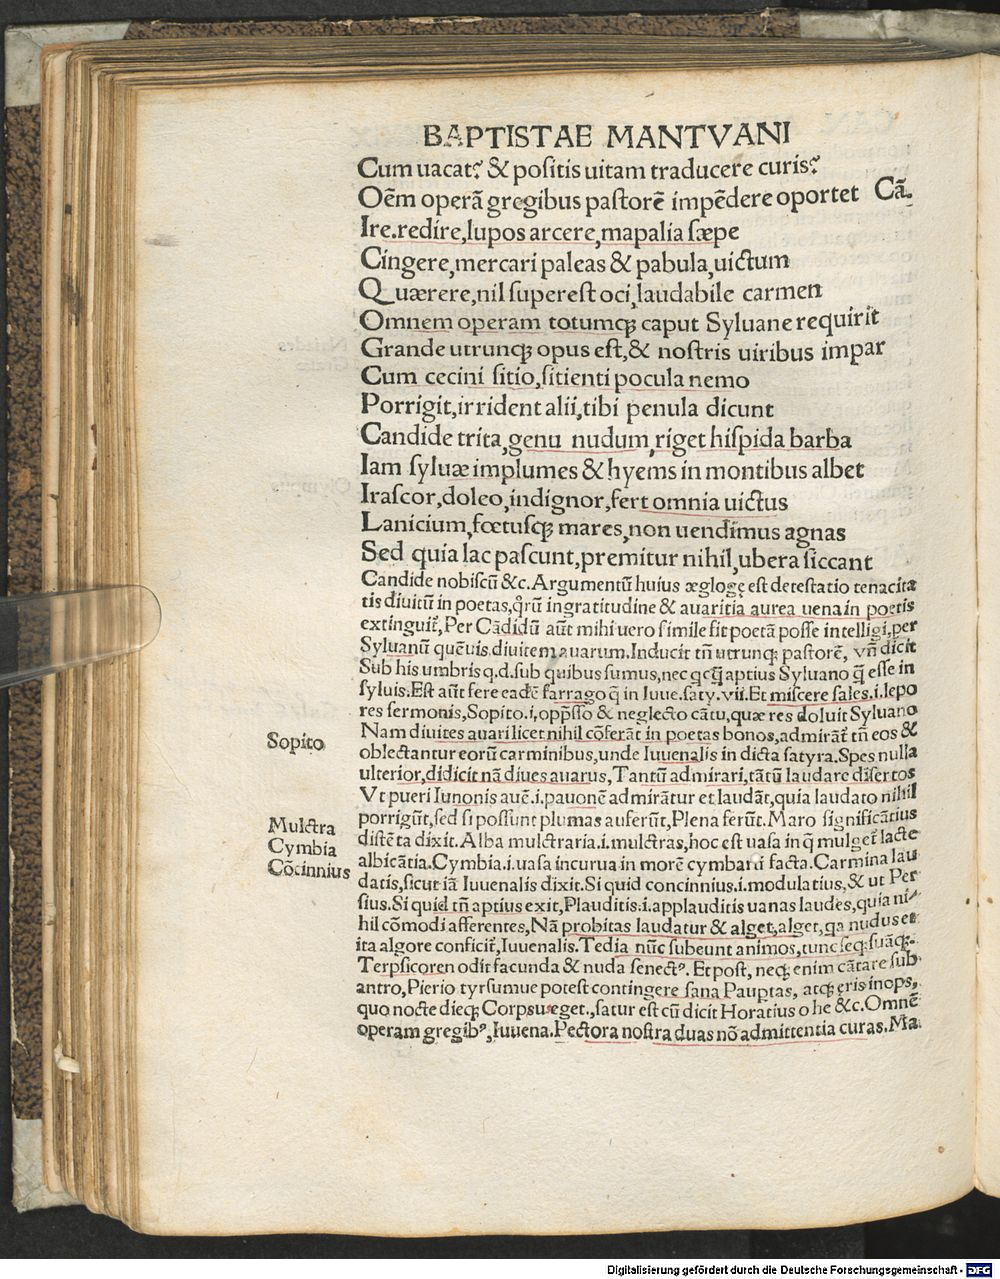 BAPTISTAE MANTVANI
Cum uacat? & poſitis uitam traducere curis?
Oẽm operã gregibus paſtorẽ impẽdere oportet Cã.
Ire.redire,lupos arcere,mapalia ſæpe
Cingere,mercari paleas & pabula,uictum
Quærere,nil ſupereſt oci,laudabile carmen
Omnem operam totumq; caput Syluane requirit
Grande utrunq; opus eſt,& noſtris uiribus impar
Cum cecini ſitio,ſitienti pocula nemo
Porrigit,irrident alii,tibi penula dicunt
Candide trita,genu nudum,riget hiſpida barba
Iam ſyluæ implumes & hyems in montibus albet
Iraſcor,doleo,indignor,fert omnia uictus
Lanicium,fœtuſq; mares,non uendimus agnas
Sed quia lac paſcunt,premitur nihil,ubera ſiccant
Candide nobiſcũ &c.Argumentũ huius æglogę eſt deteſtatio tenacita
tis diuitũ in poetas,q̃rũ ingratitudine & auaritia aurea uena in poetis
extinguit̃,Per Cãdidũ aũt mihi uero ſimile fit poetã poſſe intelligi,per
Syluanũ quẽuis diuitem auarum.Inducit tñ utrunq; paſtorẽ, vñ dicit
Sub his umbris q.d.ſub quibus ſumus,nec qcq̃ aptius Syluano q̃ eſſe in
ſyluis.Eſt aũt fere eadẽ farrago q̃ in Iuue.ſaty.vii.Et miſcere ſales.i.lepo
res ſermonis,Sopito.i,opp̃ſſo & neglecto cãtu,quæ res doluit Syluano
Nam diuites auari licet nihil cõferãt in poetas bonos,admirãt̃ tñ eos &
oblectantur eorũ carminibus,unde Iuuenalis in dicta ſatyra.Spes nulla
ulterior,didicit nã diues auarus,Tantũ admirari,tãtũ laudare diſertos
Vt pueri Iunonis auẽ.i.pauonẽ admirãtur et laudãt,quia laudato nihil
porrigũt,ſed ſi poſſunt plumas auferũt,Plena ferũt.Maro ſignificãtius
diſtẽta dixit.Alba mulctraria.i.mulctras,hoc eſt uaſa in q̃ mulget̃ lacte
albicãtia.Cymbia.i.uaſa incurua in morẽ cymbarũ facta.Carmina lau
datis,ſicut iã Iuuenalis dixit.Si quid concinnius.i.modulatius,& ut Per
ſius.Si quid tñ aptius exit,Plauditis.i.applauditis uanas laudes,quia ni-
hil cõmodi afferentes,Nã probitas laudatur & alget,alget,qa nudus et
ita algore conficit̃,Iuuenalis.Tedia nũc ſubeunt animos,tunc ſeq; ſuãq;.
Terpſicoren odit facunda & nuda ſenectꝰ. Et poſt, neq; enim cãtare ſub
antro,Pierio tyrſumue poteſt contingere ſana Paup̃tas, atq; ęris inops,
quo nocte dieq; Corpus eget.,ſatur eſt cũ dicit Horatius ohe &c.Omnẽ
operam gregibꝰ,Iuuena.Pectora noſtra duas nõ admittentia curas.Ma.
Sopito
Mulctra
Cymbia
Cõcinnius
Digitalisierung gefördert durch die Deutsche Forschungsgemeinschaft - DFG